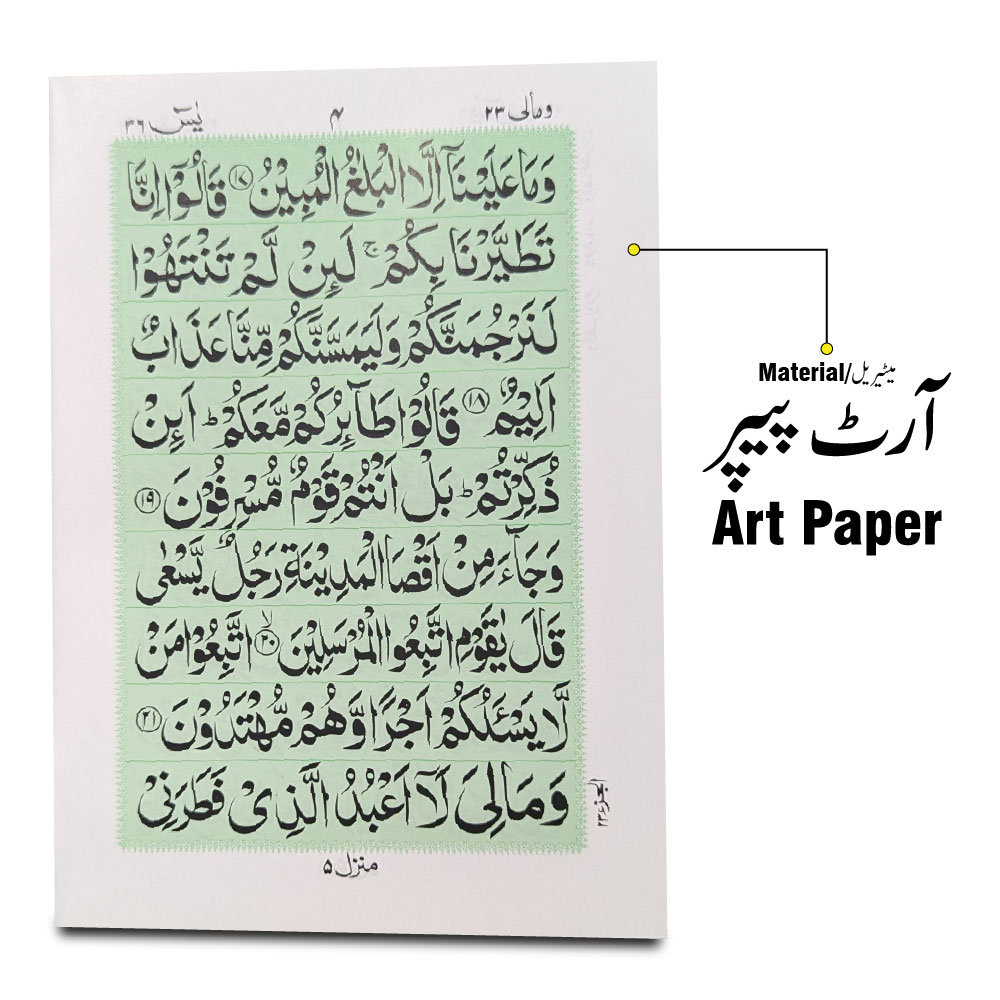 ومالی ۲۳
۴
یٰسٓ ۳۶
وَمَا عَلَيْنَاۤ اِلَّا الْبَلٰغُ الْمُبِيْنُ ۝۱۷ قَالُوْۤا اِنَّا
تَطَيَّرْنَا بِكُمْ ۚ لَئِنْ لَّمْ تَنْتَهُوْا
لَنَرْجُمَنَّكُمْ وَلَيَمَسَّنَّكُمْ مِّنَّا عَذَابٌ
اَلِيْمٌ ۝۱۸ قَالُوْا طَآئِرُكُمْ مَّعَكُمْ ؕ اَئِنْ
ذُكِّرْتُمْ ؕ بَلْ اَنْتُمْ قَوْمٌ مُّسْرِفُوْنَ ۝۱۹
وَجَآءَ مِنْ اَقْصَا الْمَدِيْنَةِ رَجُلٌ يَّسْعٰى
قَالَ يٰقَوْمِ اتَّبِعُوا الْمُرْسَلِيْنَ ۝۲۰ۙ اتَّبِعُوْا مَنْ
لَّا يَسْـَٔلُكُمْ اَجْرًا وَّهُمْ مُّهْتَدُوْنَ ۝۲۱
وَمَا لِىَ لَاۤ اَعْبُدُ الَّذِىْ فَطَرَنِىْ
الجزء ۲۳
منزل ۵
Material/میٹیریل
آرٹ پیپر
Art Paper